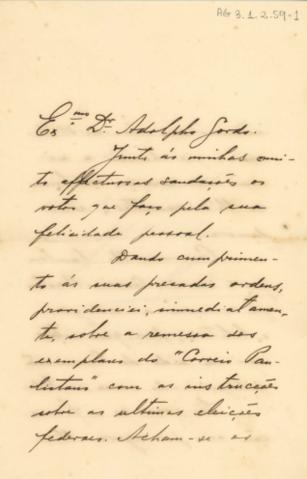 AG 3.1.2.59-1
Ex.mo Dr. Adolpho Gordo.
Junto ás minhas mui-
to affectuosas saudações os
votos que faço pela sua
felicidade pessoal.
Dando cumprimen-
to ás suas presadas ordens,
providenciei, immediatamen-
te, sobre a remessa dos
exemplares do "Correio Pau-
listano" com as instrucções
sobre as ultimas eleições
federaes. Acham-se os